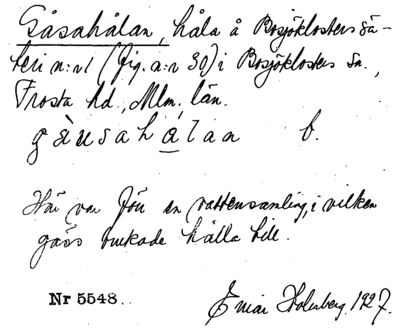 Gåsahålan, håla å Bosjöklosters sä-
teri n:r 1 (fig. a:r 30) i Bosjöklosters sn.,
Frosta hd, Mlm. län.
gàusahålan b.
Här var förr en vattensamling, i vilken
gäss brukade hålla till.
Nr 5548.
Einar Holmberg. 1927.